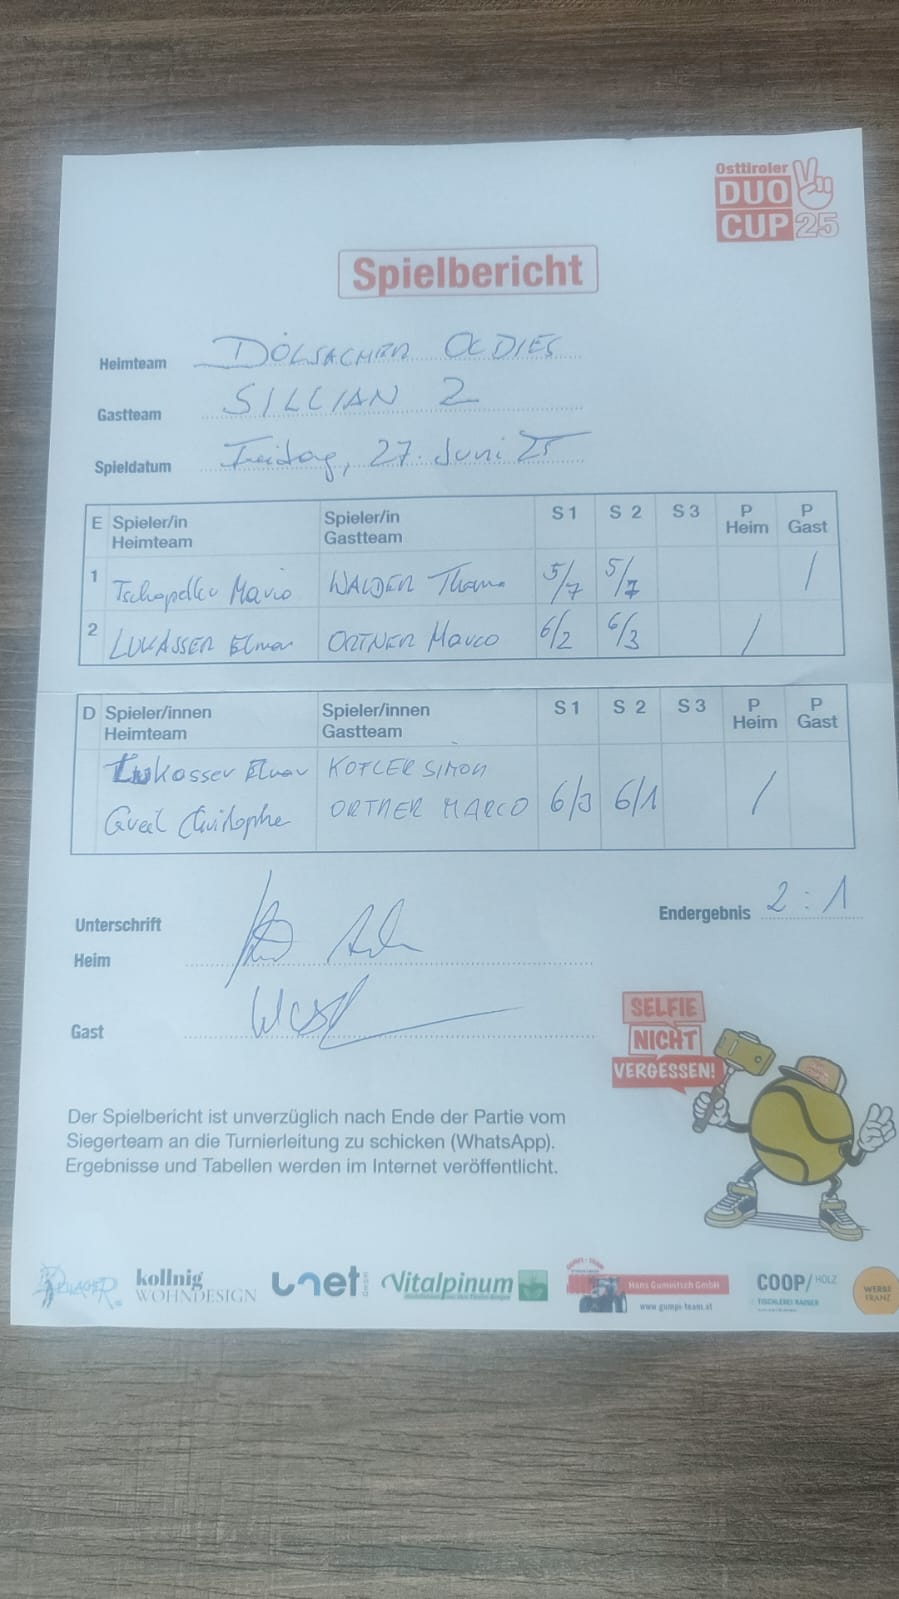 Osttiroler
DUO
CUP 25
Spielbericht
Heimteam DÖLSACHER OLDIES
Gastteam SILLIAN 2
Spieldatum Freitag, 27. Juni 25
E Spieler/in Heimteam Spieler/in Gastteam S 1 S 2 S 3 P Heim P Gast
1 Tschapeller Mario WALDER Thomas 5/7 5/7 /
2 LUKASSER Elmar ORTNER Marco 6/2 6/3 /
D Spieler/innen Heimteam Spieler/innen Gastteam S 1 S 2 S 3 P Heim P Gast
Lukasser Elmar KOFLER SIMON
Christophe ORTNER MARCO 6/3 6/1 /
Unterschrift
Endergebnis 2 : 1
Heim
Gast
SELFIE
NICHT
VERGESSEN!
Der Spielbericht ist unverzüglich nach Ende der Partie vom
Siegerteam an die Turnierleitung zu schicken (WhatsApp).
Ergebnisse und Tabellen werden im Internet veröffentlicht.
kollnig
WOHNDESIGN
unet
Vitalpinum
Hans Gumpitsch GmbH
www.gumpi-team.at
COOP/HOLZ
TISCHLEREI RAINER
WERBE
FRANZ